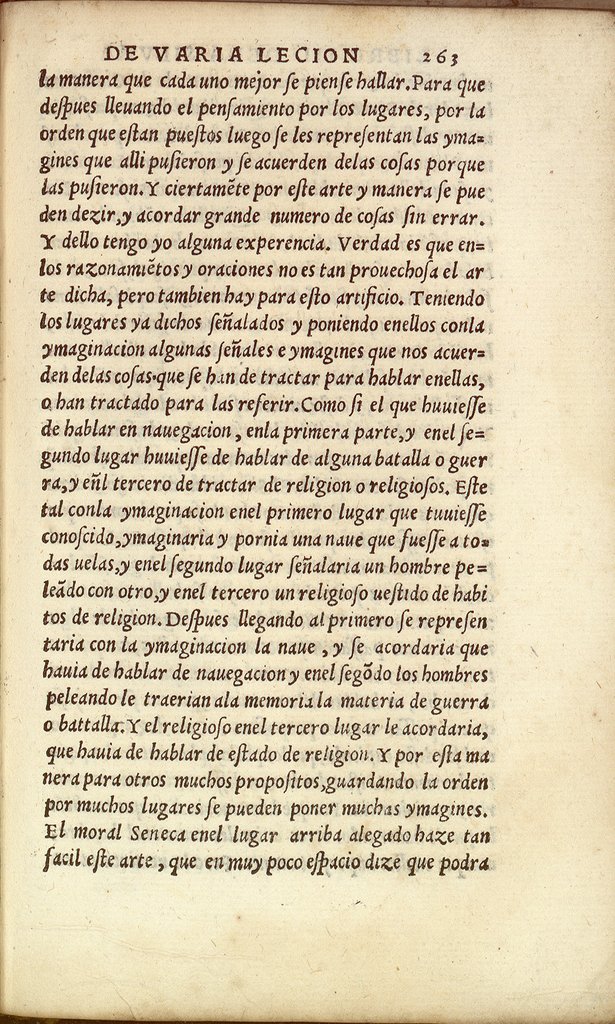 DE VARIA LECION 263
la manera que cada uno mejor ſe pienſe hallar. Para que
deſpues lleuando el penſamiento por los lugares, por la
orden que eſtan pueſtos luego ſe les repreſentan las yma=
gines que alli puſieron y ſe acuerden delas coſas porque
las puſieron. Y ciertamẽte por eſte arte y manera ſe pue
den dezir, y acordar grande numero de coſas ſin errar.
Y dello tengo yo alguna experencia. Verdad es que en=
los razonamiẽtos y oraciones no es tan prouechoſa el ar
te dicha, pero tambien hay para eſto artificio. Teniendo
los lugares ya dichos ſeñalados y poniendo enellos conla
ymaginacion algunas ſeñales e ymagines que nos acuer=
den delas coſas que ſe han de tractar para hablar enellas,
o han tractado para las referir. Como ſi el que huuieſſe
de hablar en nauegacion, enla primera parte, y enel ſe=
gundo lugar huuieſſe de hablar de alguna batalla o guer
ra, y eñl tercero de tractar de religion o religioſos. Eſte
tal conla ymaginacion enel primero lugar que tuuieſſe
conoſcido, ymaginaria y pornia una naue que fueſſe a to=
das uelas, y enel ſegundo lugar ſeñalaria un hombre pe=
leãdo con otro, y enel tercero un religioſo ueſtido de habi
tos de religion. Deſpues llegando al primero ſe repreſen
taria con la ymaginacion la naue, y ſe acordaria que
hauia de hablar de nauegacion y enel ſegõdo los hombres
peleando le traerian ala memoria la materia de guerra
o battalla. Y el religioſo enel tercero lugar le acordaria,
que hauia de hablar de eſtado de religion. Y por eſta ma
nera para otros muchos propoſitos, guardando la orden
por muchos lugares ſe pueden poner muchas ymagines.
El moral Seneca enel lugar arriba alegado haze tan
facil eſte arte, que en muy poco eſpacio dize que podra